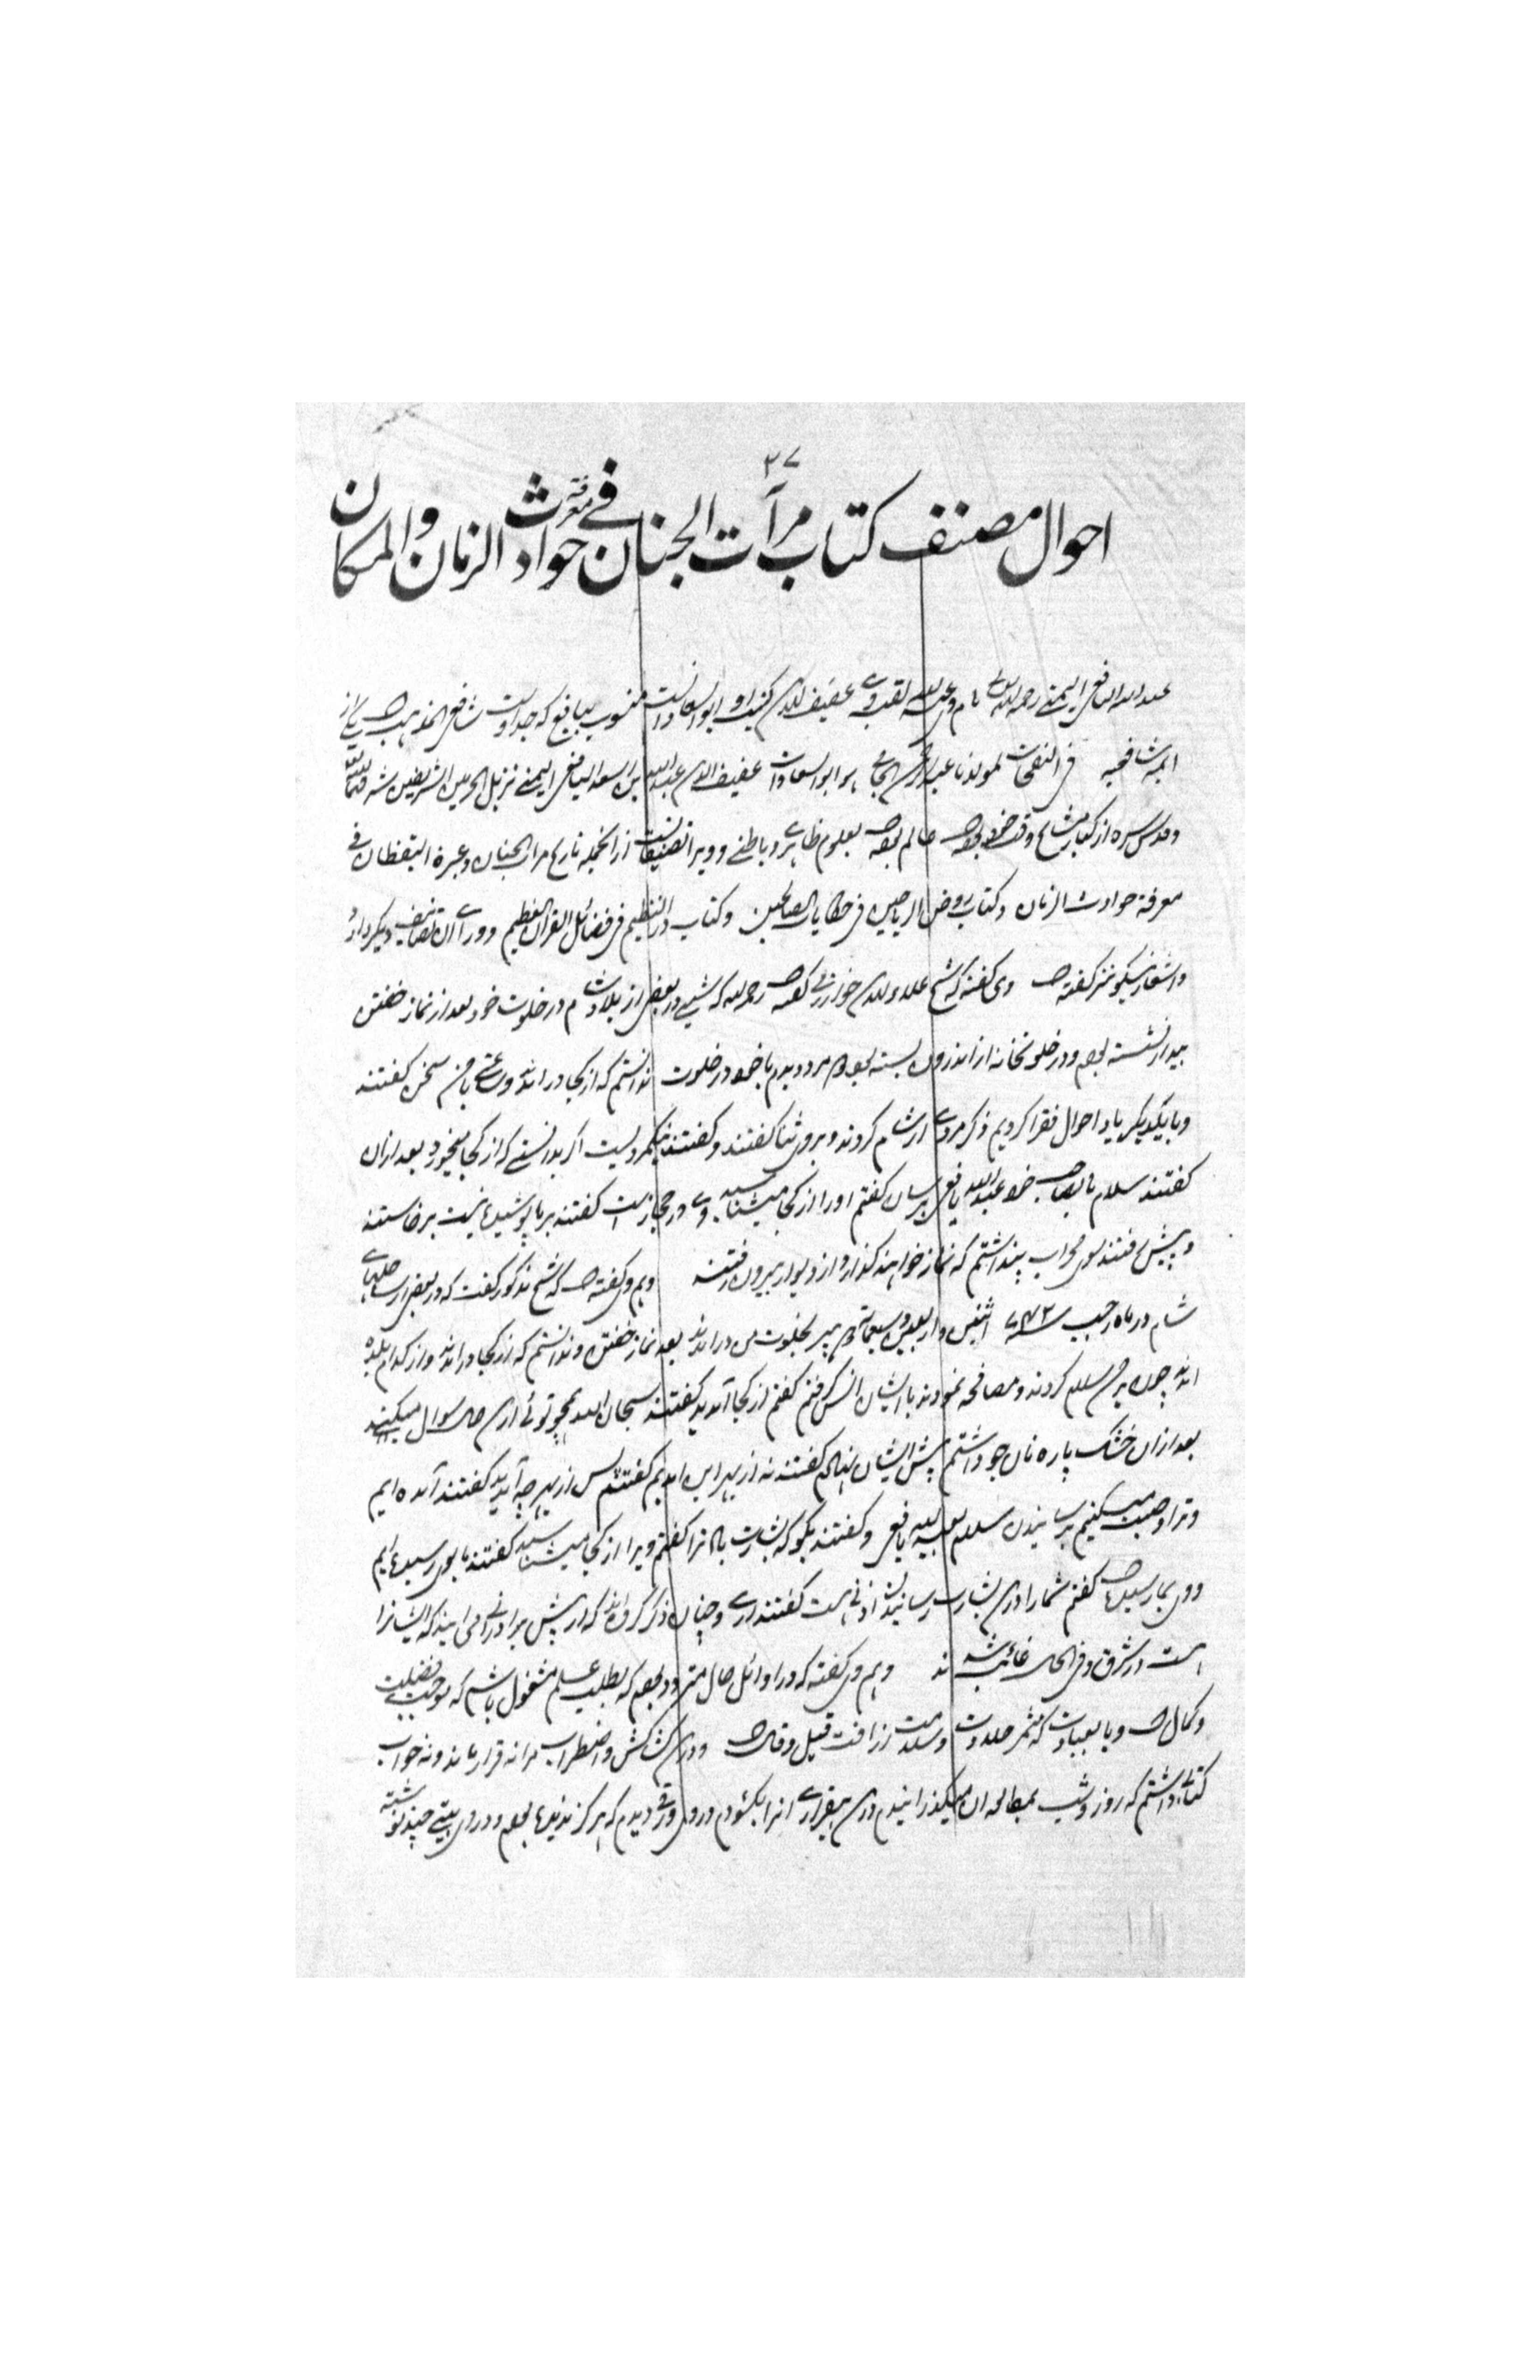 ۳۷
احوال مصنف کتاب مرآت الجنان فے معرفة حوادث الزمان والمکان
عبد الله الیافعی الیمنے رحمه الله نام وی عبد الله لقب وے عفیف الدین کنیت او ابو السعادات است منسوب بیافع که جد اوست شافعی المذهب است یکے از
ائمه شافعیه فی النفحات لمولانا عبد الرحمن الجامی هو ابو السعادات عفیف الدین عبد الله بن اسعد الیافعی الیمنے نزیل الحرمین الشریفین شرفهما الله تعالی
وقدس سره از کبار مشایخ وقت خود بوده است عالم بوده بعلوم ظاهرے و باطنے و ویرا تصنیفات است ازانجمله تاریخ مرات الجنان و عبرة الیقظان فے
معرفة حوادث الزمان و کتاب روض الریاحین فی حکایات الصالحین و کتاب در النظیم فی فضائل القران العظیم و ورای آن تصانیف دیگر دارد
و اشعار نیکو نیز گفته است وی گفته که شیخ علاء الدین خوارزمی گفته است رحمه الله که شبے در بعضی از بلاد شام در خلوت خود بعد از نماز خفتن
بیدار نشسته بودم و در خلوتخانه از اندرون بسته بود دو مرد دیدم با خود در خلوت ندانستم که از کجا در آمدند ساعتے با من سخن گفتند
و با یکدیگر یاد احوال فقرا کردیم ذکر مردے از شام کردند و بر وی ثنا گفتند و گفتند نیکمردیست اگر بدانستے که از کجا میخورد بعد ازان
گفتند سلام ما بصاحب خود عبد الله یافعی برسان گفتم او را از کجا میشناسید وے در حجاز است گفتند بر ما پوشیده نیست برخاستند
و پیش رفتند سوی محراب پنداشتم که نماز خواهند گذارد از دیوار بیرون رفتند و هم وی گفته است که شیخ مذکور گفت که در بعضی از ساحلهاے
شام در ماه رجب سنه ۷۴۲ اثنین و اربعین و سبعمائة دو پیر بخلوت من در آمدند بعد نماز خفتن و ندانستم که از کجا در آمدند و از کدام بلده
اند چون بر من سلام کردند و مصافحه نمودند با ایشان انس گرفتم گفتم از کجا آمدید گفتند سبحان الله همچو توئے ازین حال سوال میکند
بعد ازان خشک پاره نان جو داشتم پیش ایشان نهادم گفتند نه از بهر این آمدیم گفتم پس از بهر چه آمدید گفتند آمده ایم
و ترا وصیت میکنیم برسانیدن سلام بعبد الله یافعی و گفتند بگو که بشارت باد ترا گفتم ویرا از کجا میشناسید گفتند ما بوی رسیده ایم
و وی بما رسیده است گفتم شما را درین بشارت رسانیدن اذنے هست گفتند آرے و چنان ذکر کردند که از پیش برادرانے می آیند که ایشانرا
است در شرق و فی الحال غائب شدند و هم وی گفته که در اوائل حال متردد بودم که بطلب علم مشغول باشم که موجب فضیلت
و کمال است و یا بعبادت که مثمر حلاوت و سلامت از آفت قیل و قال است و درین کشاکش و اضطراب مرا نه قرار ماند و نه خواب
کتابے داشتم که روز و شب بمطالعه آن میگذرانیدم درین بیقرارے انرا بکشودم درو ورقے دیدم که هرگز ندیده بودم و دران بیتے چند نوشته